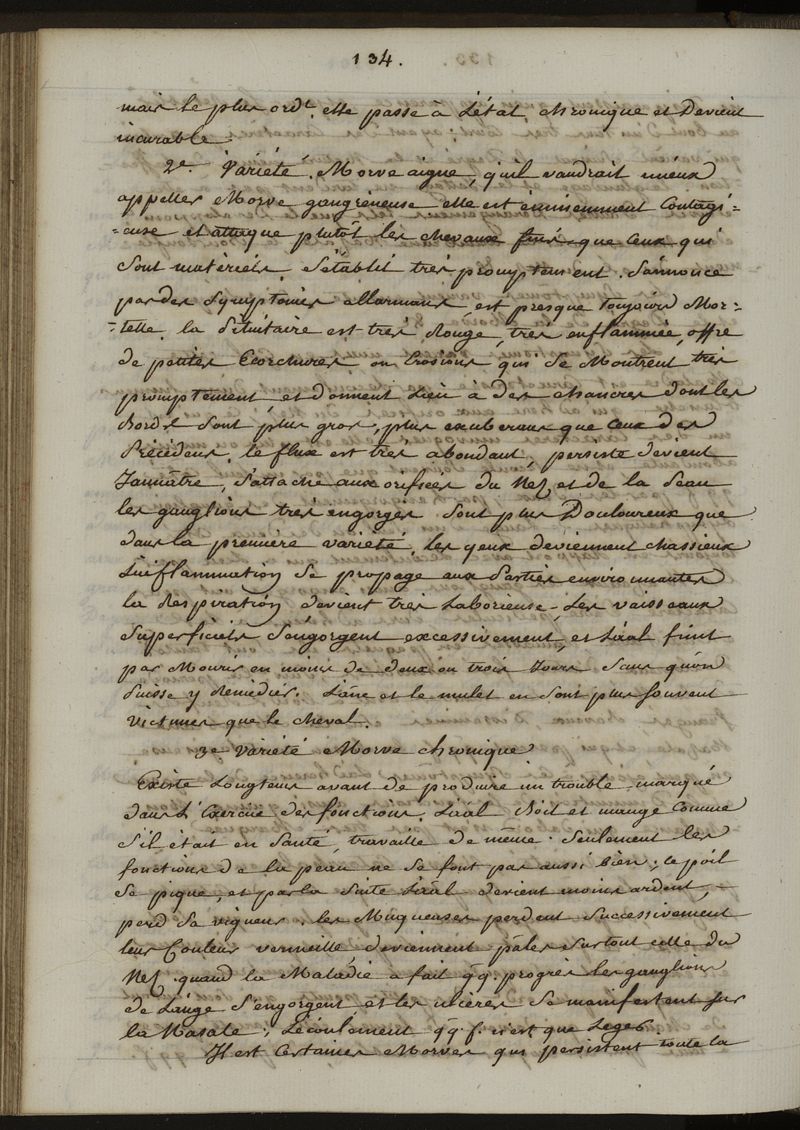 134.
mais le plus ord.t elle passe à l'état chronique et devient
incurable
2e. Variété. Morve aigue, qu'il vaudrait mieux
appeller Morve gangréneuse elle est éminemment contagi=
=euse et attaque plutôt les chevaux fins que ceux qui
sont materiels. S'établit très promptement. S'annonce
par des symptomes allarmans, est presque toujours Mor=
=telle. la Pituitaire est très Rouge, très enflammée, offre
de petites Ecorchures ou Erosions qui se Montrent très
promptement et donnent Lieu à des chancres dont les
Bords sont plus gros, plus exuberans que ceux des
Précédens. le flux est très abondant, persiste devient
Jaunâtre, s'attache aux orifices du Nez et de la Peau
les ganglions très engorgés sont plus Douloureux que
dans la première variété, les yeux deviennent chassieux
L'inflammation se propage aux Parties environnantes
la Respiration devient très Laborieuse. Les vaisseaux
superficiels s'engorgent excessivement, et L'aãl finit
par Mourir en moins de deux ou trois Jours sans qu'on
Puisse y Remédier. L'ane et le mulet en sont plus souvent
victimes que le cheval.
3e Variété Morve chronique
Existe Longtems avant de produire un trouble marqué
dans L'exercice des fonctions. L'aãl Boit et mange comme
s'il était en Santé, travaille de même. Seulement les
fonctions de la peau ne se font pas aussi bien; le poil
se pique, et par la suite L'aãl devient moins ardent,
perd sa vigueur. les Muqueuses perdent successivement
leur Couleur vermeille, deviennent pâles surtout celle du
Nez. quand la Maladie a fait qq. progrès les ganglions
de L'auge s'engorgent et les ulcères se manifestent sur
la Nasale; L'écoulement qq. f. n'est que Leger.
Il est Certaines Morves qui persistent toute la